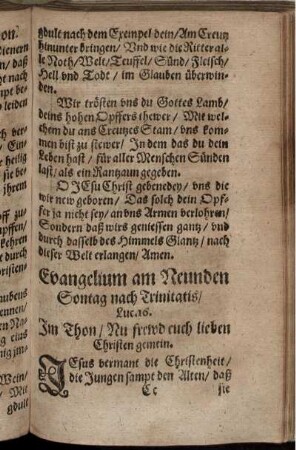 gdult nach dem Exempel dein/ Am Creutz
hinunter bringen/ Vnd wie die Ritter al-
le Noth/ Welt/ Teuffel/ Sünd/ Fleisch/
Hell vnd Todt/ im Glauben überwin-
den.
Wir trösten vns du Gottes Lamb/
deins hohen Opffers thewer/ Mit wel-
chem du ans Creutzes Stam/ vns kom-
men bist zu stewer/ In dem das du dein
Leben hast/ für aller Menschen Sünden
last/ als ein Rantzaun gegeben.
O JEsu Christ gebenedey/ vns die
wir new geboren/ Das solch dein Opf-
fer ja nicht sey/ an vns Armen verlohren/
Sondern daß wirs geniessen gantz/ vnd
durch dasselb des Himmels Glantz/ nach
dieser Welt erlangen/ Amen.
Evangelium am Neunden
Sontag nach Trinitatis/
Luc.16.
Im Thon/ Nu frewd euch lieben
Christen gemein.
JEsus vermant die Christenheit/
die Jungen sampt den Alten/ daß
Cc sie